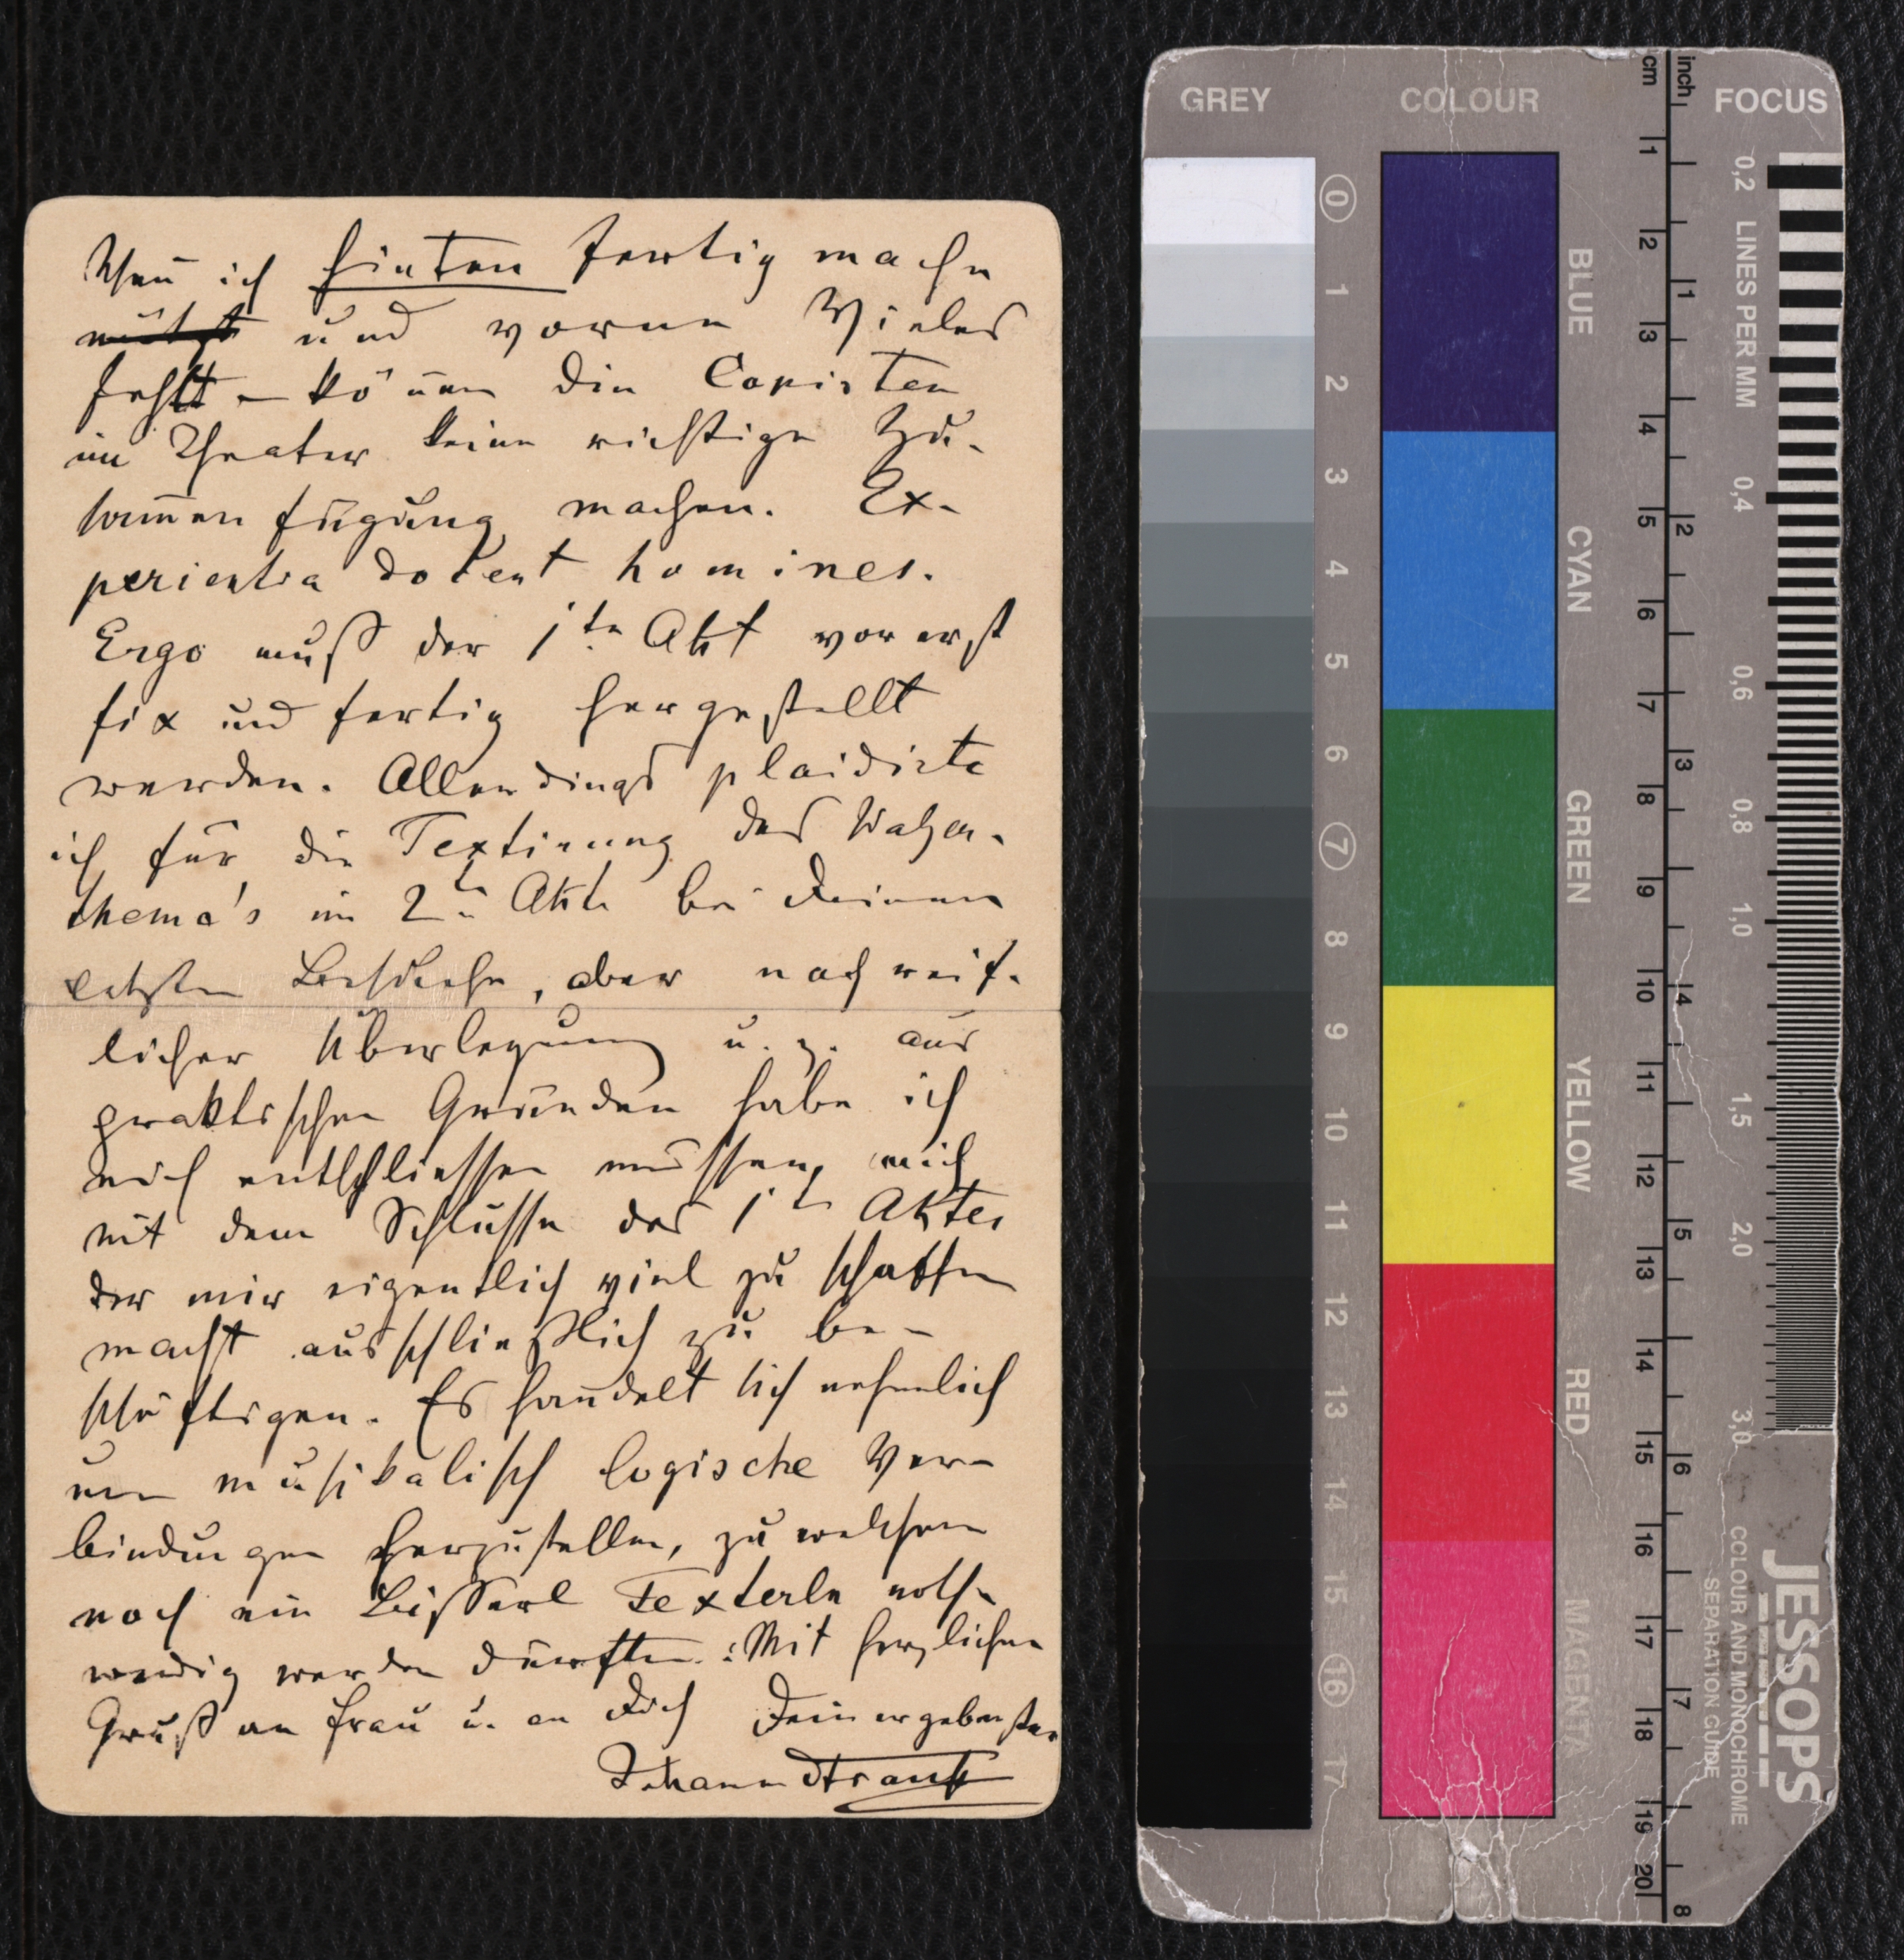 Wen̄ ich hinten fertig mache
und vorne Vieles
fehlt – kön̄en die Copisten
im Theater keine richtige Zu-
sam̄enfügung machen. Ex-
perientia docent homines.
Ergo muß der 1te Akt vorerst
fix und fertig hergestellt
werden. Allerdings plaidirte
ich für die Textirung des Walzer-
thema's im 2ten Akte bei Deinem
letzten Besuche, aber nach reif-
licher Überlegung u. z. aus
praktischen Gründen habe ich
mich entschliessen müssen, mich
mit dem Schlusse des 1ten Aktes
der mir eigentlich viel zu schaffen
macht ausschließlich zu be-
schäftigen. Es han̄delt sich nehmlich
um musikalisch logische Ver-
bindungen herzustellen, zu welchen
noch ein Bisserl Texterln noth-
wendig werden dürften. Mit herzlichen
Gruß an Frau u. an Dich Dein ergebenster
Johann Strauß
GREY COLOUR FOCUS
cm inch
0 1 2 3 4 5 6 7 8 9 10 11 12 13 14 15 16 17
BLUE
CYAN
GREEN
YELLOW
RED
MAGENTA
1 2 3 4 5 6 7 8 9 10 11 12 13 14 15 16 17 18 19 20
1 2 3 4 5 6 7 8
0,2 LINES PER MM 0,4 0,6 0,8 1,0 1,5 2,0 3,0
JESSOPS
COLOUR AND MONOCHROME
SEPARATION GUIDE